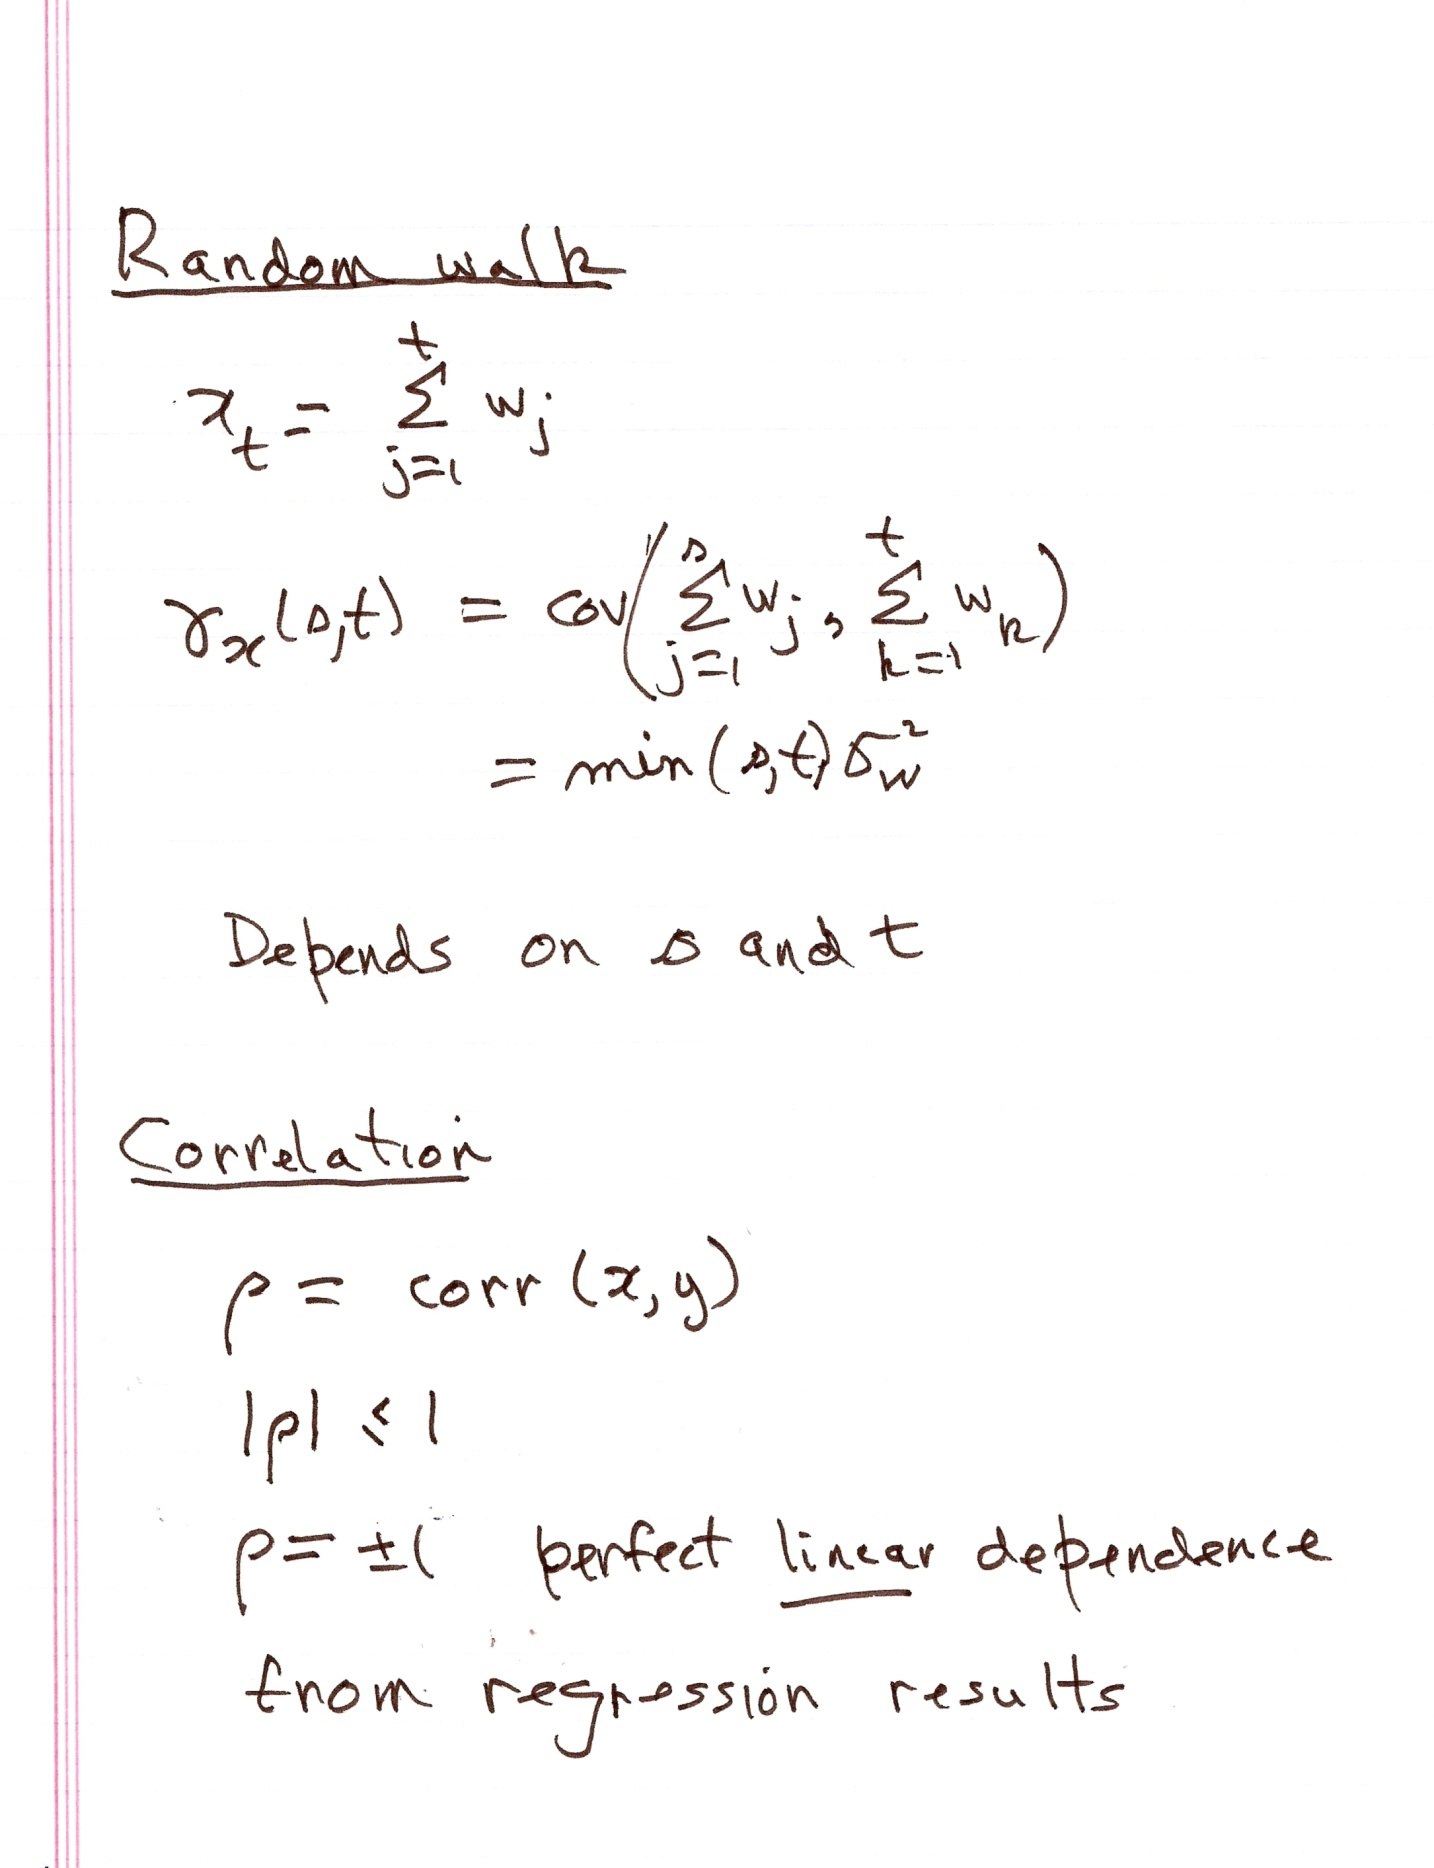 Random walk
x_t = \sum_{j=1}^{t} w_j
γ_x(s,t) = cov(\sum_{j=1}^{s} w_j, \sum_{k=1}^{t} w_k)
= min(s,t) σ_w^2
Depends on s and t
Correlation
ρ = corr (x,y)
|ρ| ≤ 1
ρ = ±1 perfect linear dependence
from regression results